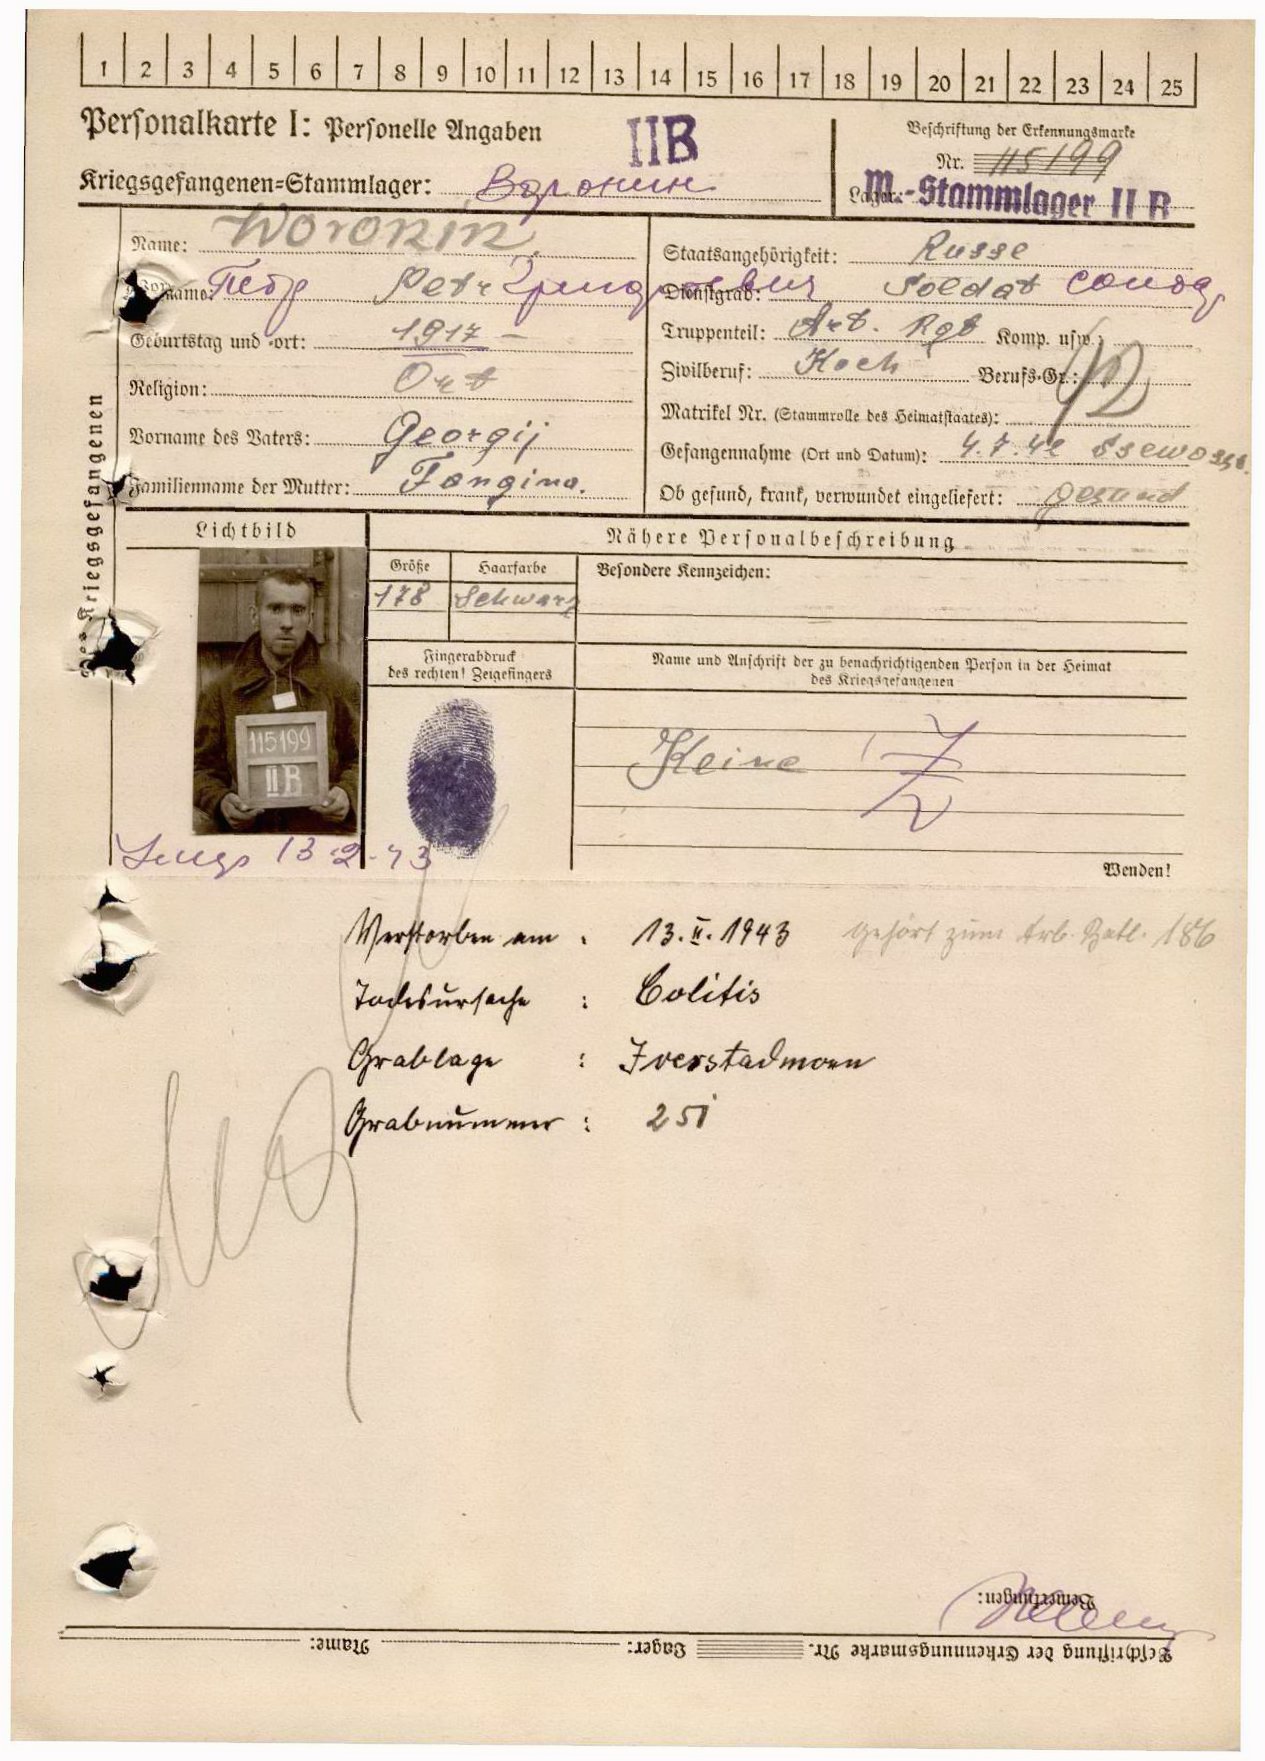 1 2 3 4 5 6 7 8 9 10 11 12 13 14 15 16 17 18 19 20 21 22 23 24 25
Personalkarte I: Personelle Angaben
IIB
Beschriftung der Erkennungsmarke
Nr. 115199
Kriegsgefangenen-Stammlager: Воронин
Lager: M.-Stammlager II B
Name: Woronin
Staatsangehörigkeit: Russe
Vorname: Петр Petr
Dienstgrad: Soldat солдат
Geburtstag und -ort: 1917 -
Truppenteil: Art. Rgt Komp. usw.:
Religion: Ort
Zivilberuf: Koch Berufs-Gr.:
Matrikel Nr. (Stammrolle des Heimatstaates):
Vorname des Vaters: Georgij
Gefangennahme (Ort und Datum): 4.7.42
Familienname der Mutter:
Ob gesund, krank, verwundet eingeliefert: gesund
Des Kriegsgefangenen
Lichtbild
Nähere Personalbeschreibung
Größe Haarfarbe
Besondere Kennzeichen:
178 Schwarz
Fingerabdruck
des rechten! Zeigefingers
Name und Anschrift der zu benachrichtigenden Person in der Heimat
des Kriegsgefangenen
115199
IIB
Keine
13.2.43
Wenden!
Verstorben am : 13.II.1943 gehört zum Arb. Batl. 186
Todesursache : Colitis
Grablage : Iverstadmoen
Grabnummer : 251
Bemerkungen:
Beschriftung der Erkennungsmarke Nr. Lager: Name: